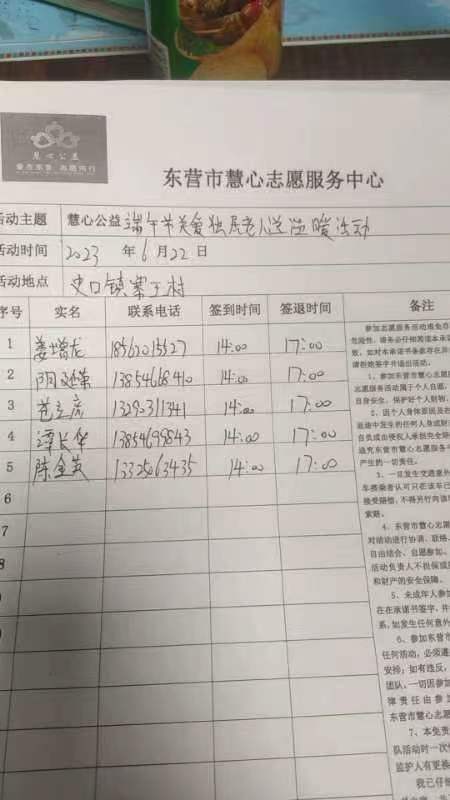 慧心公益
东营市慧心志愿服务中心
活动主题 慧心公益端午节关爱独居老人送温暖活动
活动时间 2023 年 6 月 22 日
活动地点 史口镇寨王村
序号 实名 联系电话 签到时间 签退时间 备注
1 姜增龙 18562015527 14:00 17:00
2 14:00 17:00
3 14:00 17:00
4 谭长华 13854699843 14:00 17:00
5 陈金英 14:00 17:00
6
7
8
参加志愿服务活动难免存
危险性,请务必仔细阅读本承诺
款,如对本承诺书条款存在异
请拒绝签字并退出活动。
1、参加东营市慧心志愿服
志愿服务活动属于个人自愿,
自身安全,保护好个人财物,
2、因个人身体原因及在
途中发生的任何人身或财
自负或由侵权人承担完全赔
追究东营市慧心志愿服务
产生的一切责任。
3、一旦发生交通意外
车搭乘者认可只在该车已
接受赔偿,不得另行向该
索赔。
4、东营市慧心志愿服
对活动进行协调、联络、
自由结合、自愿参加。
活动负责人不担保成
和财产的安全保障。
5、未成年人参加
在在承诺书签字,并
系,如发生任何意外
6、参加东营市
任何活动,必须遵
安排;如有违反,
团队,一切因参加
律责任由参加
东营市慧心志愿
7、本免责
队活动时一次性
监护人有更换
我已仔